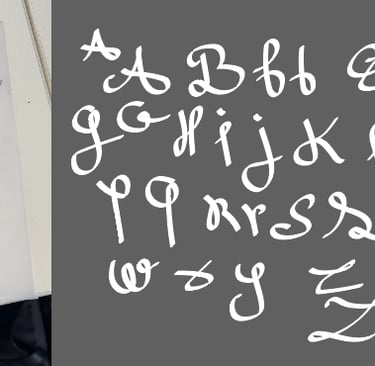 A A B b b
g G H i j K
P q R r S S
w x y z Z